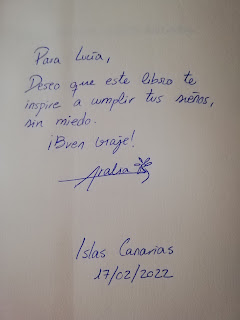 Para Lucía,
Deseo que este libro te
inspire a cumplir tus sueños,
sin miedo.
¡Buen viaje!
Islas Canarias
17/02/2022